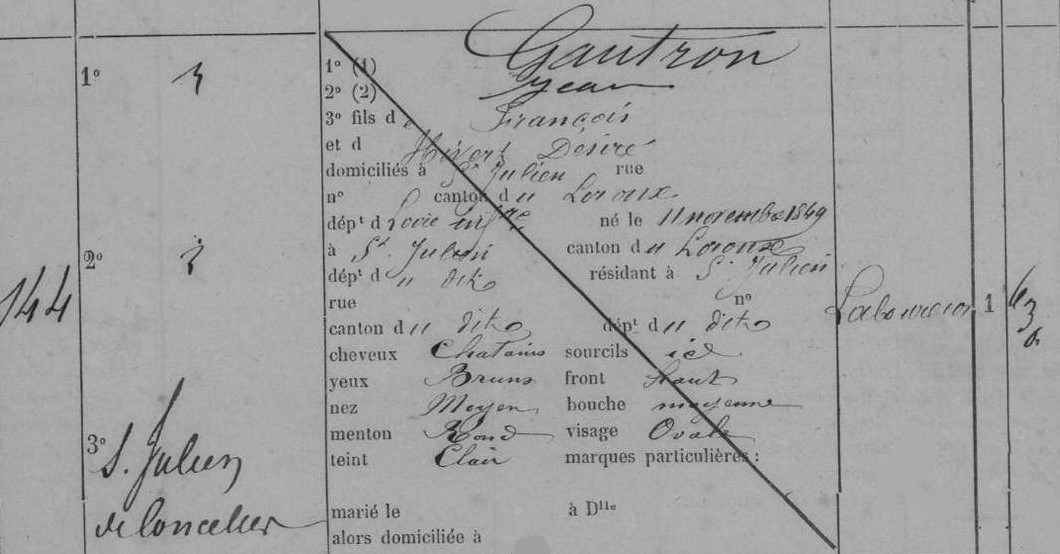 144
1º 3
2º 3
3º S. Julien
de Concelles
Gautron
1º (1)
2º (2) Jean
3º fils de François
et d Désiré
domiciliés à St Julien rue
nº canton du Loroux
dépt d Loire infre né le 11 novembre 1849
à St Julien canton du Loroux
dépt du dit résidant à St Julien
rue nº
canton du dito dépt du dito
cheveux Chatains sourcils id
yeux Bruns front haut
nez Moyen bouche moyenne
menton Rond visage Ovale
teint Clair marques particulières :
marié le à Dlle
alors domiciliée à
Laboureur
1